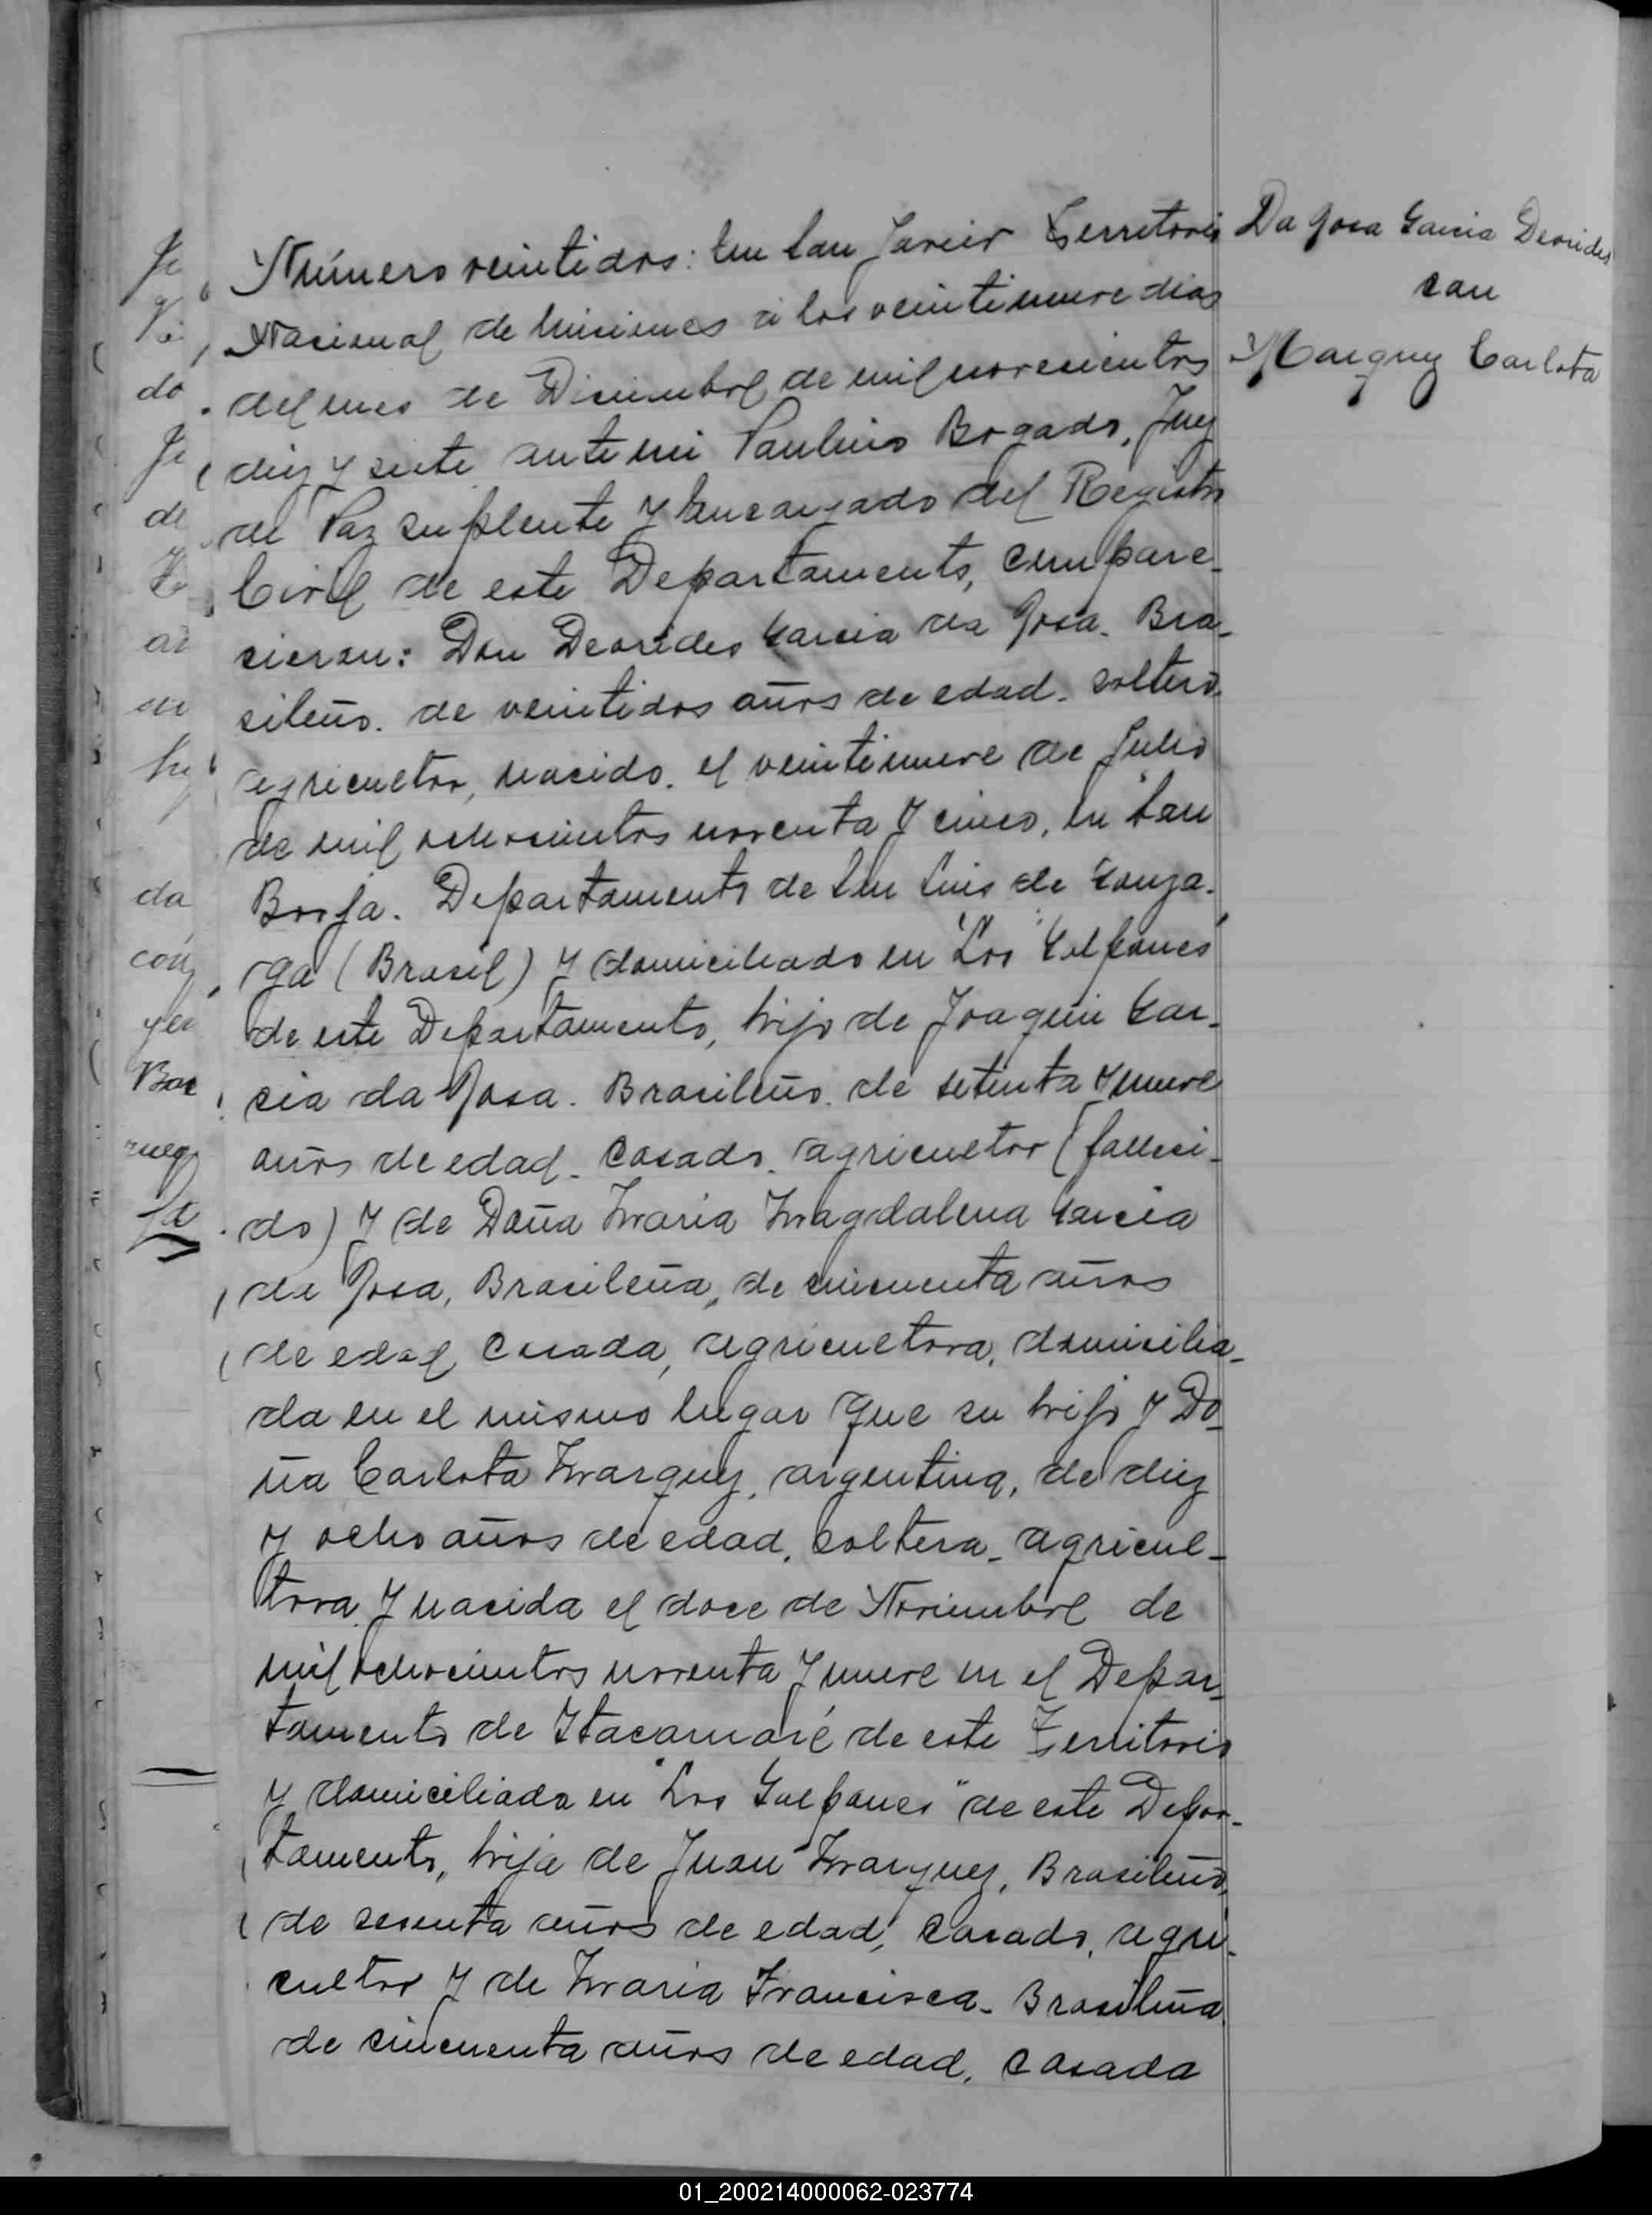 Da Rosa Garcia Deorides
con
Marquez Carlota
Número veintidos: En San Javier Territorio
Nacional de Misiones á los veintinueve dias
del mes de Diciembre de mil novecientos
diez y siete, ante mi Paulino Bogado, Juez
de Paz suplente y Encargado del Registro
Civil de este Departamento, compare-
cieron: Don Deorides Garcia da Rosa. Bra-
sileño. de veintidos años de edad. soltero,
agricultor, nacido. el veintinueve de Julio
de mil ochocientos noventa y cinco, en San
Borja. Departamento de San Luis de Gonza-
ga (Brasil) y domiciliado en "Los Galpones"
de este Departamento, hijo de Joaquin Gar-
cia da Rosa. Brasileño. de setenta y nueve
años de edad. casado. agricultor (falleci-
do) y de Doña Maria Magdalena Garcia
da Rosa, Brasileña, de cincuenta años
de edad, casada, agricultora, domicilia-
da en el mismo lugar que su hijo y Do-
ña Carlota Marquez, argentina, de diez
y ocho años de edad, soltera, agricul-
tora y nacida el doce de Noviembre de
mil ochocientos noventa y nueve en el Depar-
tamento de Itacaruaré de este Territorio
y domiciliada en "Los Galpones" de este Depar-
tamento, hija de Juan Marquez, Brasileño,
de sesenta años de edad, casado, agri-
cultor y de Maria Francisca. Brasileña
de cincuenta años de edad, casada
01_200214000062-023774